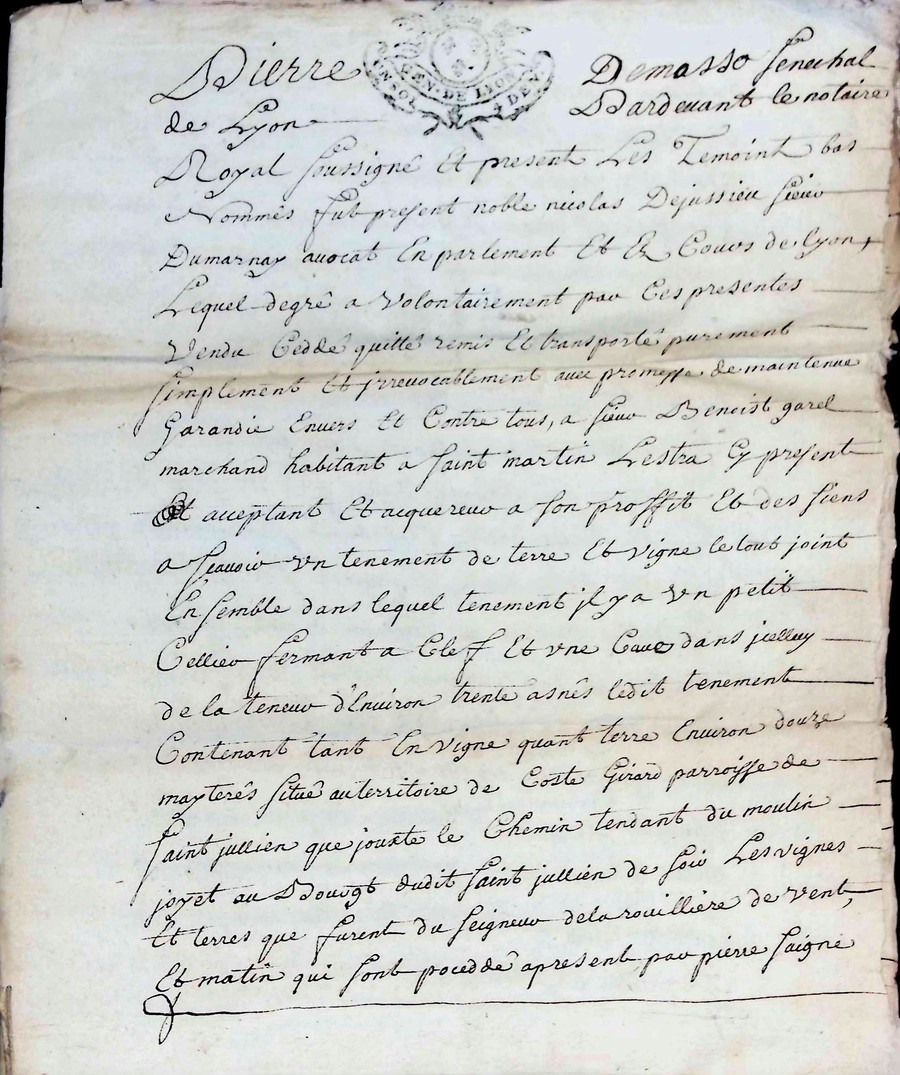 Pierre Demasso Senechal
de Lyon Pardevant le notaire
Royal soussigné Et present Les Temoint bas
Nommés fut present noble nicolas Dejussieu sieur
Dumarnay avocat En parlement Et Ez Cours de lyon,
Lequel degré a volontairement par Ces presentes
Vendu Ceddé quitté remis Et transporté purement
simplement Et jrrevocablement avec promesse de maintenue
Garandie Envers Et Contre tous, a sieur Benoist garel
marchand habitant a saint martin Lestra Cy present
Et acceptant Et acquereur a son proffit Et des siens
a scavoir vn tenement de terre Et vigne le tout joint
Ensemble dans lequel tenement jl y a vn petit
Cellier fermant a Clef Et vne Cave dans jcelluy
de la teneur d'Environ trente asnés ledit tenement
Contenant tant En vigne quant terre Environ douze
mayterés situé au territoire de Coste Girard parroisse de
saint jullien que jouxte le Chemin tendant du moulin
joyet au Bourgt dudit saint jullien de soir Les vignes
Et terres que furent du seigneur de la rouilliere de vent,
Et matin qui sont poceddé apresent par pierre saigne